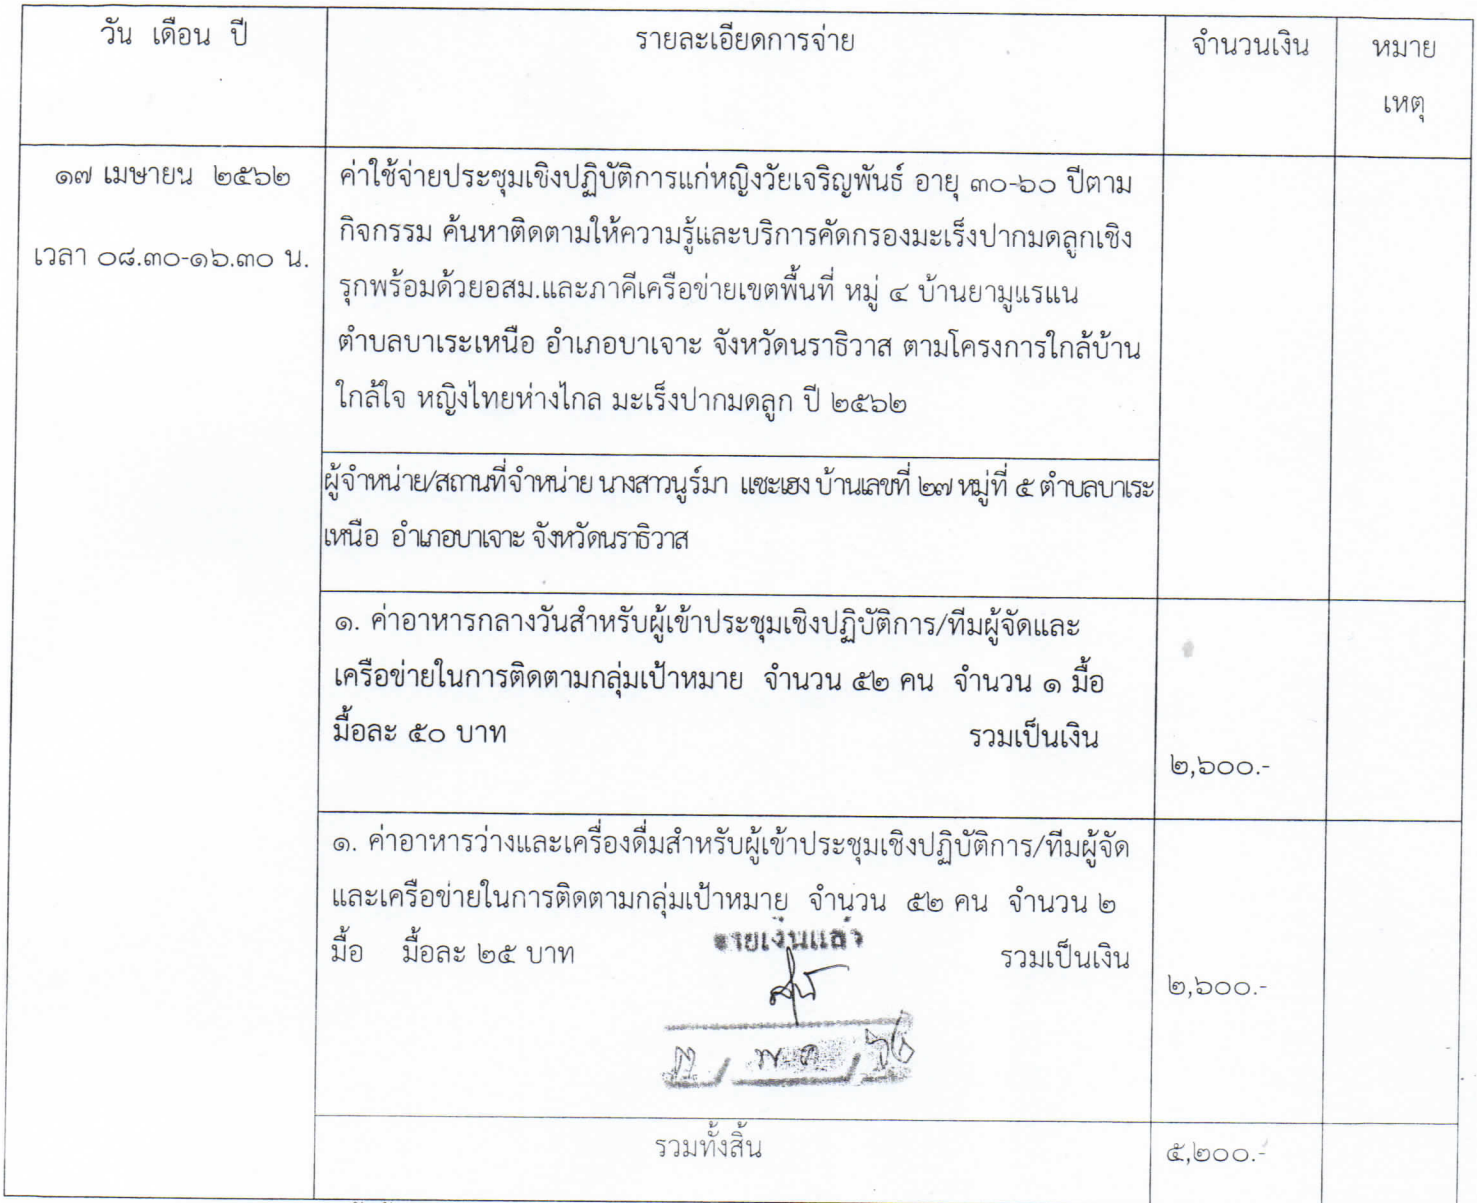 วัน เดือน ปี
รายละเอียดการจ่าย
จำนวนเงิน
หมาย
เหตุ
๑๗ เมษายน ๒๕๖๒
เวลา ๐๘.๓๐-๑๖.๓๐ น.
ค่าใช้จ่ายประชุมเชิงปฏิบัติการแก่หญิงวัยเจริญพันธ์ อายุ ๓๐-๖๐ ปีตาม
กิจกรรม ค้นหาติดตามให้ความรู้และบริการคัดกรองมะเร็งปากมดลูกเชิง
รุกพร้อมด้วยอสม.และภาคีเครือข่ายเขตพื้นที่ หมู่ ๔ บ้านยามูแรแน
ตำบลบาเระเหนือ อำเภอบาเจาะ จังหวัดนราธิวาส ตามโครงการใกล้บ้าน
ใกล้ใจ หญิงไทยห่างไกล มะเร็งปากมดลูก ปี ๒๕๖๒
ผู้จำหน่าย/สถานที่จำหน่าย นางสาวนูร์มา แซะเฮง บ้านเลขที่ ๒๗ หมู่ที่ ๕ ตำบลบาเระ
เหนือ อำเภอบาเจาะ จังหวัดนราธิวาส
๑. ค่าอาหารกลางวันสำหรับผู้เข้าประชุมเชิงปฏิบัติการ/ทีมผู้จัดและ
เครือข่ายในการติดตามกลุ่มเป้าหมาย จำนวน ๕๒ คน จำนวน ๑ มื้อ
มื้อละ ๕๐ บาท รวมเป็นเงิน
๒,๖๐๐.-
๑. ค่าอาหารว่างและเครื่องดื่มสำหรับผู้เข้าประชุมเชิงปฏิบัติการ/ทีมผู้จัด
และเครือข่ายในการติดตามกลุ่มเป้าหมาย จำนวน ๕๒ คน จำนวน ๒
มื้อ มื้อละ ๒๕ บาท รวมเป็นเงิน
จ่ายเงินแล้ว
๒,๖๐๐.-
รวมทั้งสิ้น
๕,๒๐๐.-